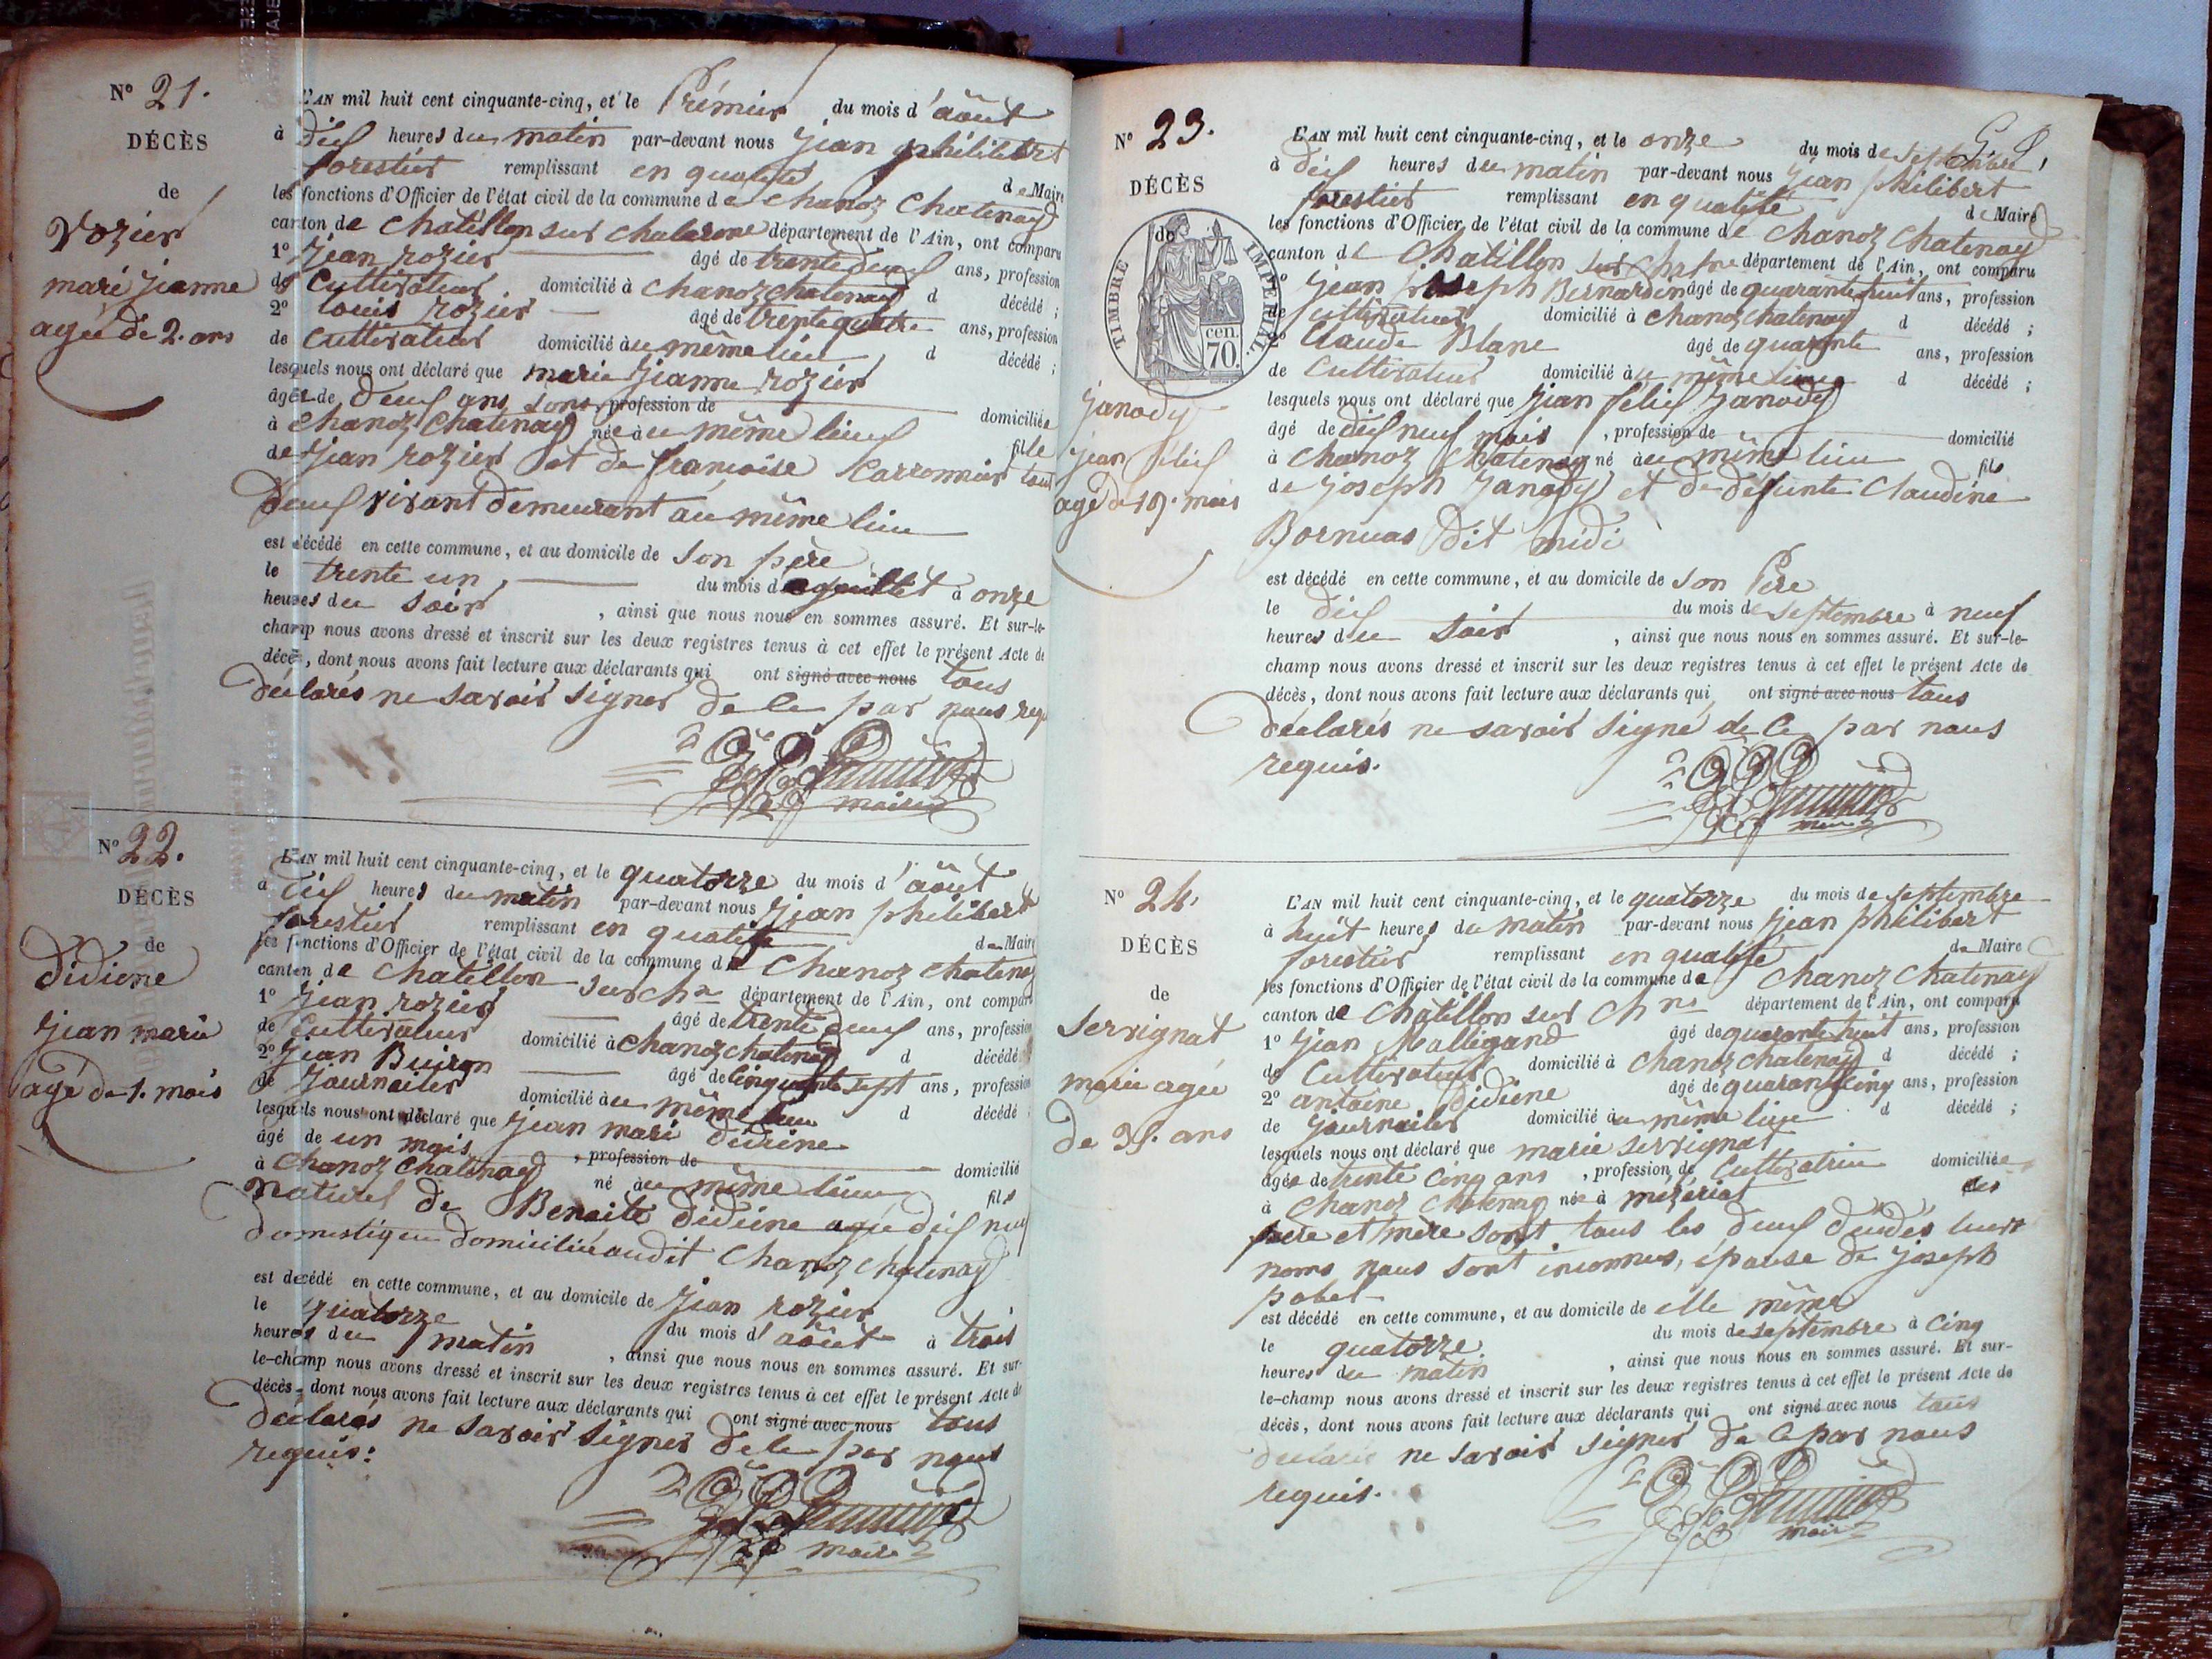 N° 21.
DÉCÈS
de
Rozier
mari jeanne
agée de 2. ans
L'AN mil huit cent cinquante-cinq, et le Prémier du mois d'aôut
à dix heures du matin par-devant nous jean philibert
forestier remplissant en qualité de Maire
les fonctions d'Officier de l'état civil de la commune de chanoz Chatenay
canton de Chatillon sur chalarone département de l'Ain, ont comparu
1° jean rozier âgé de trente deux ans, profession
de Cultivateur domicilié à chanoz chatenay d décédé ;
2° louis rozier âgé de trente quatre ans, profession
de Cultivateur domicilié au même lieu, d décédé ;
lesquels nous ont déclaré que marie jeanne rozier
âgée de deux ans, sans profession de domiciliée
à chanoz chatenay née au même lieux fille
de jean rozier et de francoise Carronnier tous
deux vivant demeurant au même lieu
est décédé en cette commune, et au domicile de son père
le trente un, du mois de juillet à onze
heures du soir , ainsi que nous nous en sommes assuré. Et sur-le-
champ nous avons dressé et inscrit sur les deux registres tenus à cet effet le présent Acte de
décès, dont nous avons fait lecture aux déclarants qui ont signé avec nous tous
déclarés ne savoir signer de ce par nous
maire
N° 22.
DÉCÈS
de
Didiene
jean marie
agé de 1. mois
L'AN mil huit cent cinquante-cinq, et le quatorze du mois d'aôut
à dix heures du matin par-devant nous jean philibert
forestier remplissant en qualité de Maire
les fonctions d'Officier de l'état civil de la commune de Chanoz chatenay
canton de chatillon sur ch département de l'Ain, ont comparu
1° jean rozier âgé de trente deux ans, profession
de Cultivateur domicilié à chanoz chatenay d décédé
2° jean Buiron âgé de cinquante sept ans, profession
de journalier domicilié au même lieu d décédé ;
lesquels nous ont déclaré que jean mari didiene
âgé de un mois, profession de domicilié
à chanoz chatenay né au même lieu fils
naturel de Benoite didiene agée dix neuf
domestique domiciliée audit chanoz chatenay
est décédé en cette commune, et au domicile de jean rozier
le quatorze du mois d'aôut à trois
heures du matin , ainsi que nous nous en sommes assuré. Et sur-
le-champ nous avons dressé et inscrit sur les deux registres tenus à cet effet le présent Acte de
décès, dont nous avons fait lecture aux déclarants qui ont signé avec nous tous
déclarés ne savoir signer de ce par nous
requis.
maire
N° 23.
DÉCÈS
de
TIMBRE IMPERIAL.
70 cen.
janody
jean felix
agé de 19. mois
L'AN mil huit cent cinquante-cinq, et le onze du mois de septembre
à dix heures du matin par-devant nous jean philibert
forestier remplissant en qualité de Maire
les fonctions d'Officier de l'état civil de la commune de chanoz chatenay
canton de chatillon sur département de l'Ain, ont comparu
jean joseph Bernardin âgé de quarante huit ans, profession
de Cultivateur domicilié à chanoz chatenay d décédé ;
2° Claude Blanc âgé de quarante ans, profession
de Cultivateur domicilié au même lieu d décédé ;
lesquels nous ont déclaré que jean felix janody
âgé de dix neuf mois , profession de domicilié
à chanoz chatenay né au même lieu fils
de joseph janody et de defunte Claudine
Bornuas dit midi
est décédé en cette commune, et au domicile de son Père
le dix du mois de septembre à neuf
heures du soir , ainsi que nous nous en sommes assuré. Et sur-le-
champ nous avons dressé et inscrit sur les deux registres tenus à cet effet le présent Acte de
décès, dont nous avons fait lecture aux déclarants qui ont signé avec nous tous
déclarés ne savoir signé de ce par nous
requis.
N° 24.
DÉCÈS
de
Servignat
marie agée
de 35. ans
L'AN mil huit cent cinquante-cinq, et le quatorze du mois de septembre
à huit heures du matin par-devant nous jean philibert
forestier remplissant en qualité de Maire
les fonctions d'Officier de l'état civil de la commune de chanoz chatenay
canton de Chatillon sur département de l'Ain, ont comparu
1° jean Malligand âgé de quarante huit ans, profession
de Cultivateur domicilié à chanoz chatenay d décédé ;
2° antoine didiene âgé de quarante cinq ans, profession
de journalier domicilié au même lieu d décédé ;
lesquels nous ont déclaré que marie servignat
âgée de trente cinq ans , profession de Cultivatrice domiciliée
à chanoz chatenay née à mézériat des
père et mère sont tous les deux leurs
noms nous sont inconnus, épouse de joseph
pobel
est décédé en cette commune, et au domicile de elle même
le quatorze du mois de septembre à cinq
heures du matin , ainsi que nous nous en sommes assuré. Et sur-
le-champ nous avons dressé et inscrit sur les deux registres tenus à cet effet le présent Acte de
décès, dont nous avons fait lecture aux déclarants qui ont signé avec nous tous
déclarés ne savoir signer de ce par nous
requis.
maire